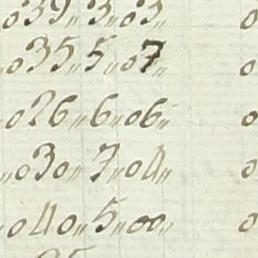 039„3„03„ 0
„035„5„07„ 0
„026„6„06„ 0
„030„7„04„ 0
„040„5„00„ 0